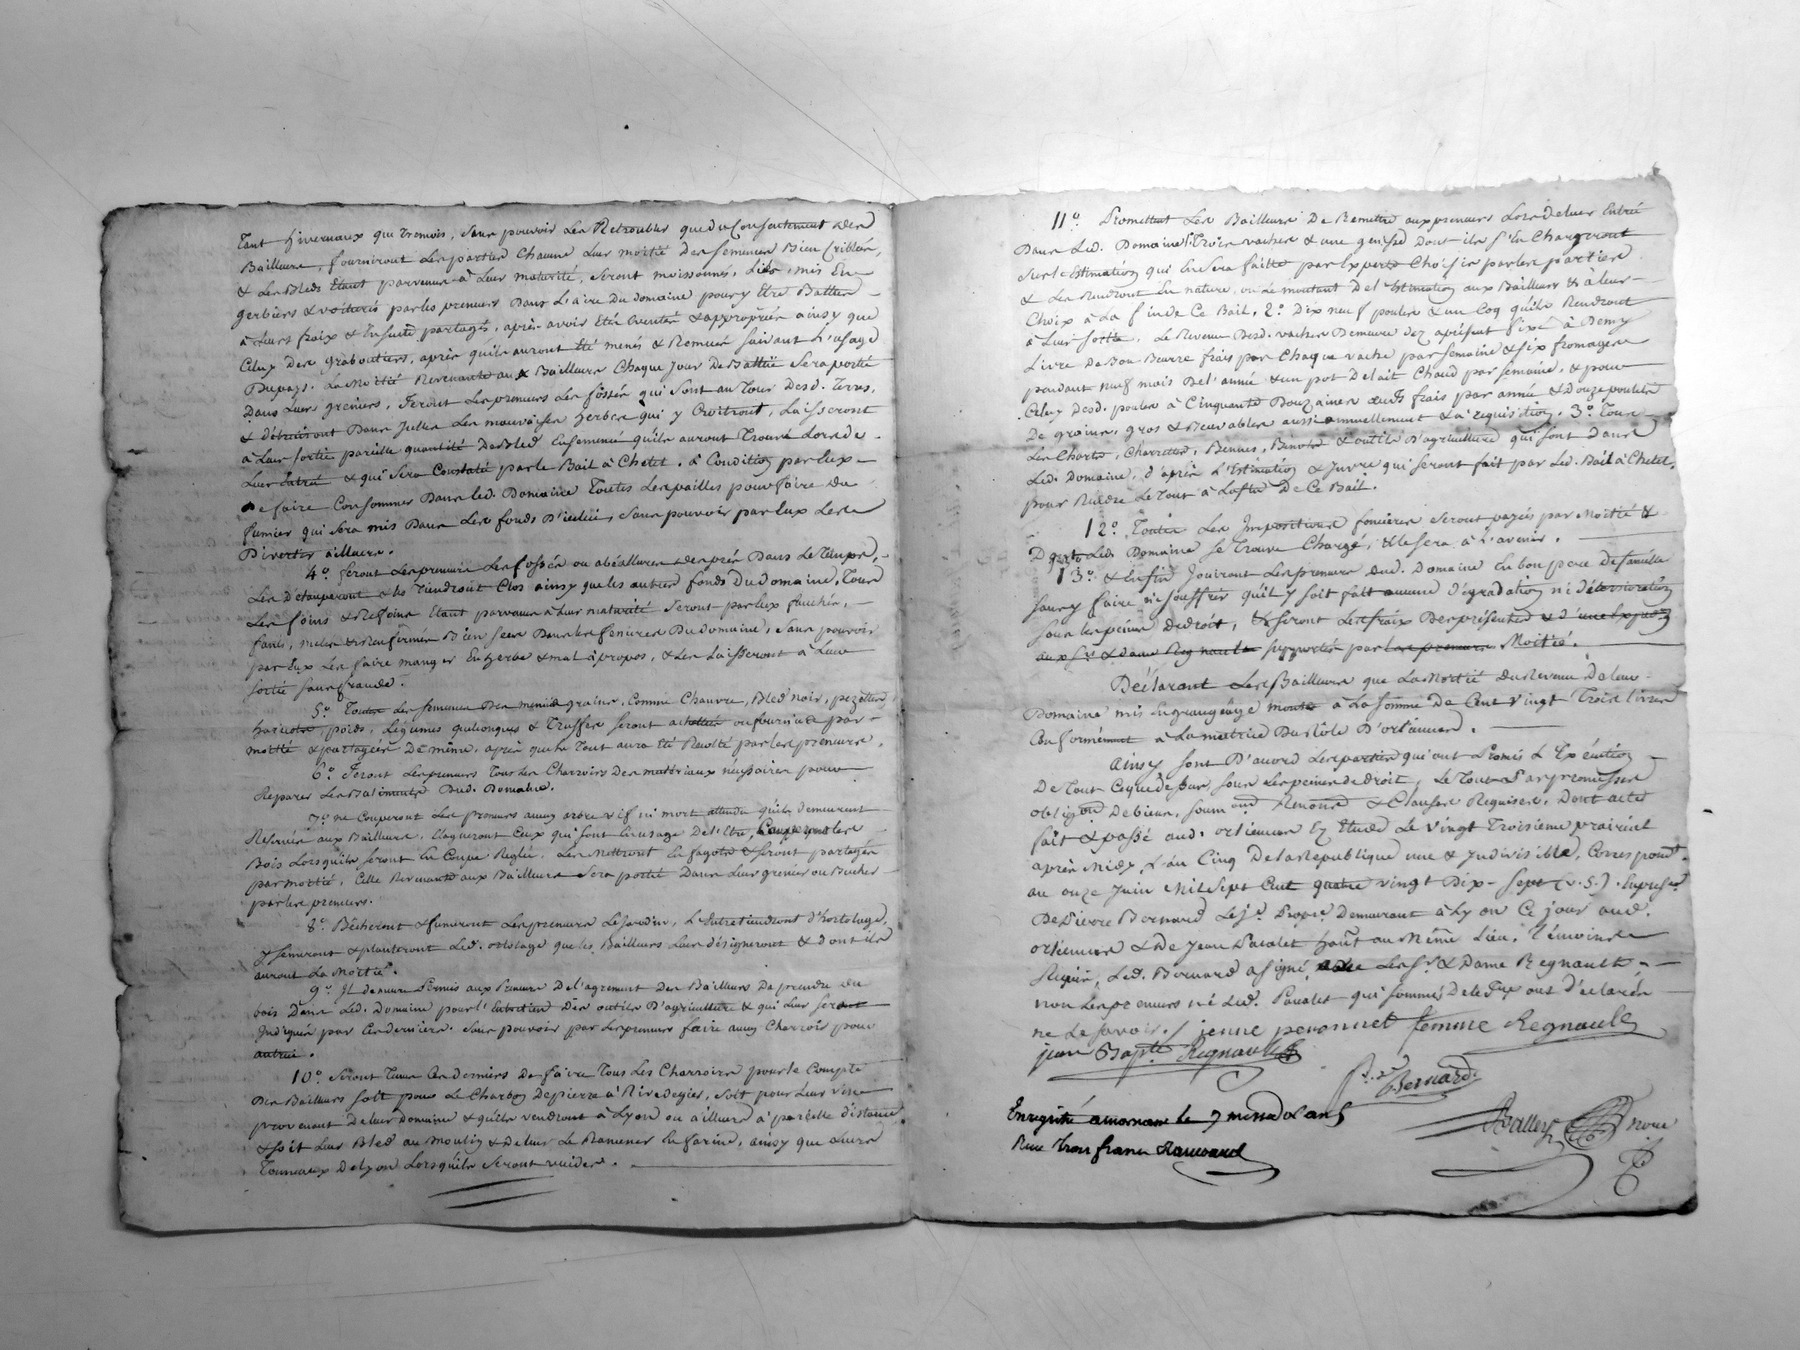 Tant hivernaux que tremois, sans pouvoir les Retroubler que du Consentement des
Bailleurs, fourniront les parties Chacune leur moitié des semences Bien Criblées,
& les Bleds Etant parvenus à leur maturité, seront moissonnés, liés, mis En
gerbiers & voiturés par les preneurs Dans l'aire Du domaine pour y Etre Battus
à leurs fraix & Ensuite partagés, après avoir Eté Eventés & appropriés ainsy que
Celuy des graboutiers, après qu'ils auront Eté menés & Remués suivant L'usage
Du pays. La Moitié Revenante aux Bailleurs Chaque jour De Battue Sera porté
Dans leurs greniers, feront les preneurs les fossés qui Sont au Tour Desd. Terres,
& détruiront Dans Jcelles les mauvaises herbes qui y Croîtront, Laisseront
à leur sortie pareille quantité De Bled Ensemencé qu'ils auront Trouvé lors de
leur Entrée & qui Sera Constaté par le Bail à Chetel. à Condition par Eux
de faire Consommer Dans led. Domaine Toutes les pailles pour faire du
fumier qui sera mis Dans Les fonds D'icelui, sans pouvoir par Eux les
Divertir ailleurs.
4º. feront les preneurs les fossés ou abéallures des prés Dans le Temps,
Les Détouperont & les Tiendront Clos ainsy que les autres fonds Du domaine, Tous
Les foins & Refoins Etant parvenus à leur maturité Seront par Eux fauchés,
fanés, & Renfermés Bien secs Dans les fenieres Du domaine, Sans pouvoir
par Eux les faire manger En herbe & mal à propos, & les Laisseront à leur
sortie sans fraude.
5º. Toutes les semences Des menues graines, Comme Chanvre, Bled noir, pezettes
haricots, poids, Légumes quelconques & Truffes seront achettées ou fournies par
moitié & partagées De même, après que le Tout aura Eté Récolté par les preneurs.
6º. Feront les preneurs Tous les Charrois Des matériaux nécessaires pour
Réparer les Batiments Dud. Domaine.
7º. ne Couperont les preneurs aucun arbre vif ni mort attendu qu'ils demeurent
Réservés aux Bailleurs, Elagueront Ceux qui sont En usage De l'Etre, Couperont les
Bois Lorsqu'ils seront En Coupe Réglée, Les Mettront En fagots & seront partagés
par moitié, Celle Revenante aux Bailleurs Sera portée Dans leur grenier ou Bucher
par les preneurs.
8º. Bécheront & fumeront les preneurs Le Jardin, L'Entretiendront d'hortolage,
y semeront & planteront Led. ortolage que les Bailleurs leur désigneront & dont ils
auront La Moitié.
9º. Il demeure Permis aux Preneurs De l'agrément Des Bailleurs De prendre du
bois Dans Led. Domaine pour l'Entretien Des outils D'agriculture & qui leur seront
Indiqués par Ces derniers. Sans pouvoir par les preneurs faire aucun Charroir pour
autrui.
10º. Seront Tenus Ces derniers De faire Tous Les Charroirs pour le Compte
Des Bailleurs soit pour Le Charbon De pierre à Rivedegier, soit pour leur vin
provenant De leur domaine & qu'ils vendront à Lyon ou ailleurs à pareille distance,
& soit leur Bled au Moulin & De leur Le Ramener En farine, ainsy que leurs
Tonneaux De Lyon lorsqu'ils seront vuides.
11º. Promettent Les Bailleurs De Remettre aux preneurs Lors de leur Entrée
Dans Led. Domaine 1º. Trois vaches & une genisse Dont ils s'En Chargeront
sur l'Estimation qui En sera faitte par Experts Choisis par les parties
& Les Rendront En nature, ou Le montant De l'Estimation aux Bailleurs & à leur
Choix à La fin de Ce Bail, 2º. Dix neuf poules & un Coq qu'ils Rendront
à leur sortie. Le Revenu Desd. vaches Demeure Dez aprésent fixé à Demy
Livre De Bon Beurre frais par Chaque vache par semaine & six fromages
pendant neuf mois De l'année & un pot De lait Chaud par semaine, & pour
Celuy Desd. poules à Cinquante Douzaines œufs frais par année & Douze poulets
De graine, gros & Recevables aussi annuellement & à requisition. 3º. Tous
Les Chars, Charrettes, Bennes, Bennots & outils D'agriculture qui sont Dans
Led. Domaine, d'après L'Estimation & Juvre qui seront fait par Led. Bail à Chetel,
pour Rendre Le Tout à La fin De Ce Bail.
12º. Toutes Les Impositions foncières seront payés par Moitié &
Dont Led. Domaine se Trouve Chargé, & le sera à l'avenir.
13º. & Enfin Jouiront Les preneurs Dud. Domaine En bon pere De famille
sans y faire ni souffrir qu'il y soit fait aucune dégradation ni déterioration
sous les peines De droit, & seront Les fraix Des présentes & d'une Expedon
aux Srs. & dame Regnault supportés par les preneurs Moitié.
Déclarant Les Bailleurs que La Moitié du Revenu De leur
Domaine mis En grangeage monte à La somme De Cent vingt Trois livres
Conformément à La matrice Du Rôle D'orliennas.
Ainsy sont D'acord Les parties qui ont Promis L'Exécution
De Tout Ceque dessus sous Les peines de droit, Le Tout Par promesses
obligaon De biens, soumon Renonc & Clauses Requises. Dont acte
fait & passé aud. orliennas Ez Etude Le vingt Troisieme prairial
après Midy, L'an Cinq De la Republique une & Jndivisible, Correspondt.
au onze Juin Mil Sept Cent quatre vingt Dix-Sept (v.s.). En présce
De Pierre Bernard Le Je. Propre. Demeurant à Lyon Ce jour aud.
orliennas & De Jean Pacalet habt au Même Lieu, Témoins
Requis, Led. Bernard a signé, avec Les Sr. & Dame Regnault
non les preneurs ni Led. Pacalet qui sommés De le fre ont déclarés
ne Le savoir./ jenne peronnet femme Regnault
jean Bapte Regnault
Bernard
Enregistré a mornan le 7 messidor an 5
Reçu trois francs
Balley nore